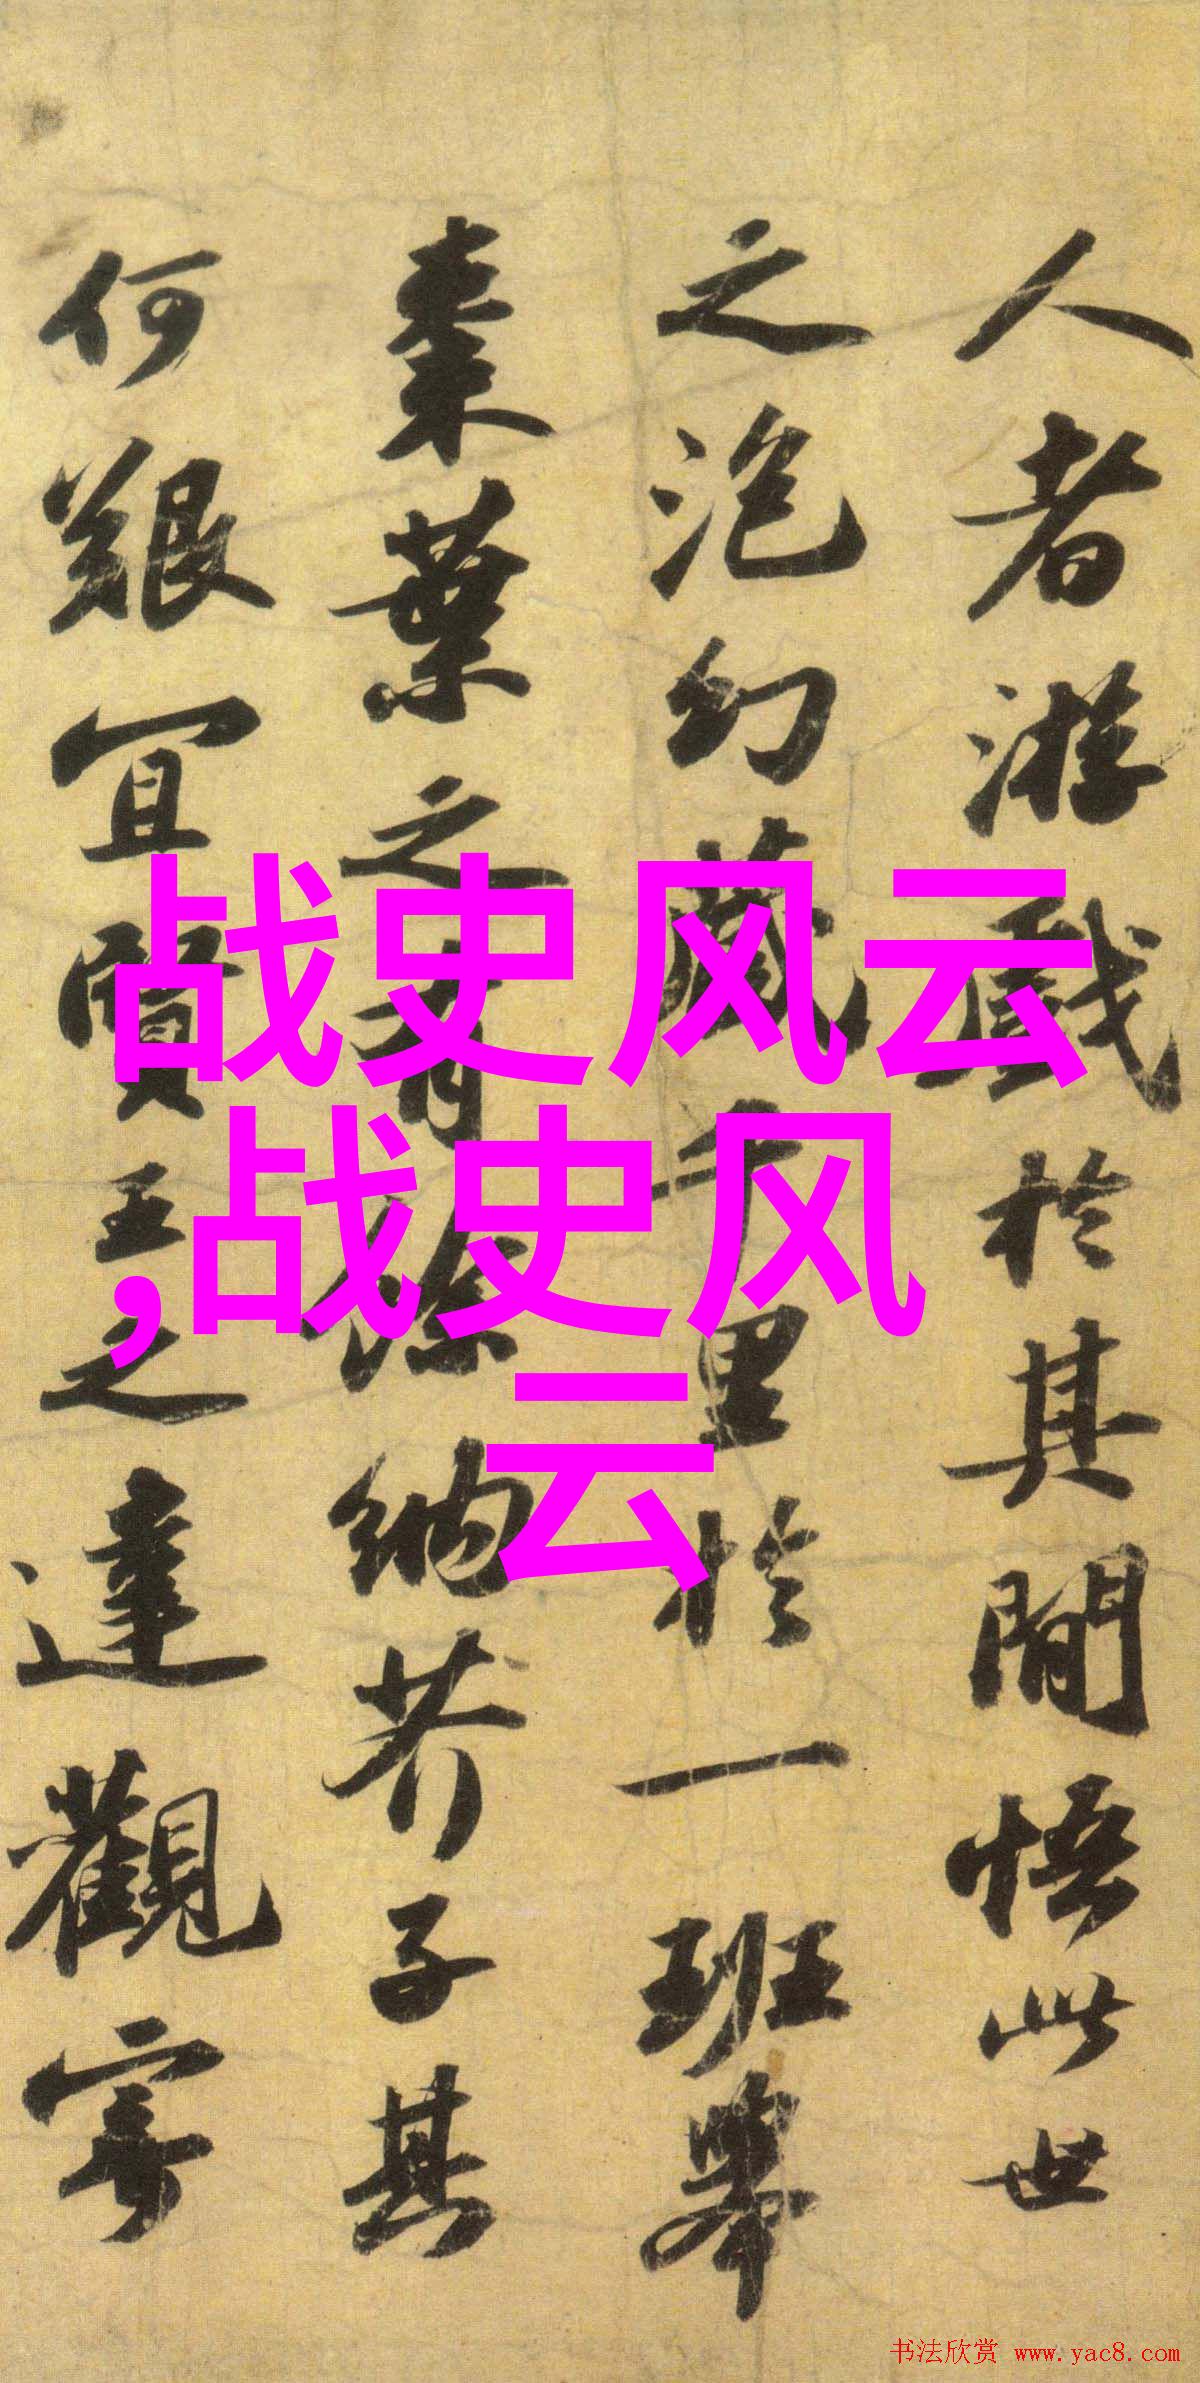 人者游戲於其間悟此世
之泡幻藏千里於一班舉
棗葉之有餘納芥子其
何艱宜賢王之達觀寄
战史风云
,战史风
云
书法欣赏 www.yac8.com